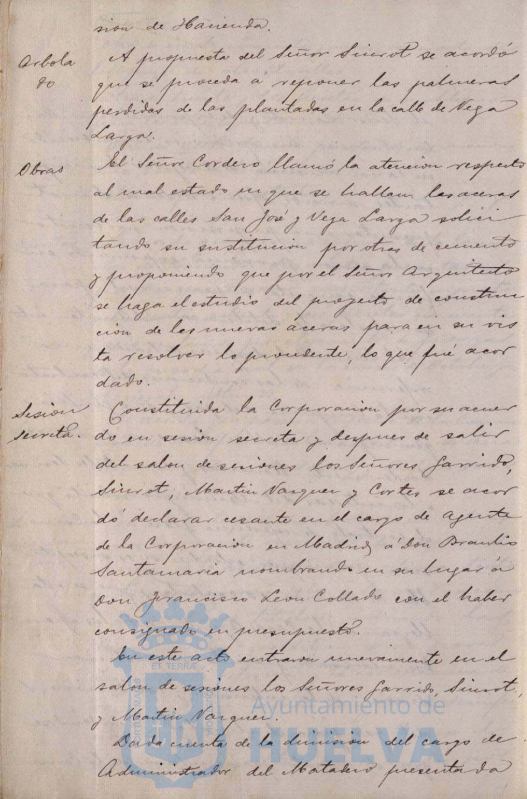 sion de Hacienda.
Arbola
do
A propuesta del Señor Siurot se acordó
que se proceda á reponer las palmeras
perdidas de las plantadas en la calle de Vega
Larga.
Obras
El Señor Cordero llamó la atencion respecto
al mal estado en que se hallan las aceras
de las calles San José y Vega Larga solici
tando su sustitucion por otras de cemento
y proponiendo que por el Señor Arquitecto
se haga el estudio del proyecto de construc
cion de las nuevas aceras para en su vis
ta resolver lo procedente, lo que fué acor
dado.
Sesion
secreta.
Constituida la Corporacion por su acuer
do en sesion secreta y despues de salir
del salon de sesiones los Señores Garrido,
Siurot, Martin Vazquez y Cortes se acor
dó declarar cesante en el cargo de Agente
de la Corporacion en Madrid á Don Braulio
Santamaria nombrando en su lugar á
Don Francisco Leon Collado con el haber
consignado en presupuesto.
En este acto entraron nuevamente en el
salon de sesiones los Señores Garrido, Siurot
y Martin Vazquez.
Dada cuenta de la dimision del cargo de
Administrador del Matadero presentada
Ayuntamiento de
HUELVA